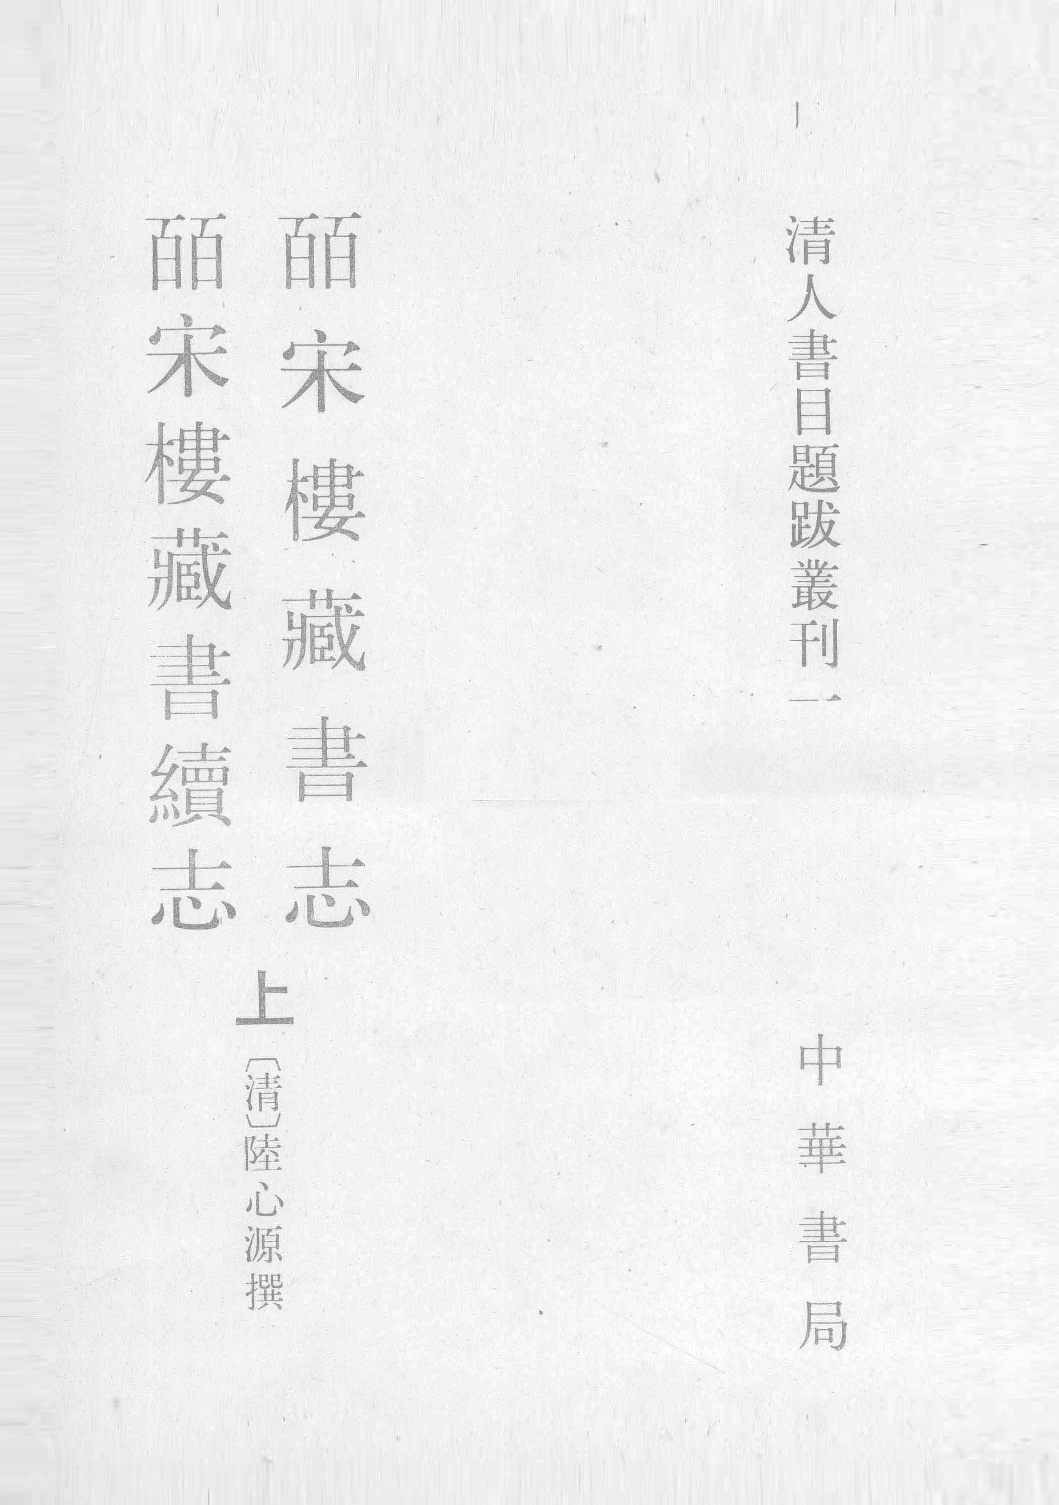 清人書目題跋叢刊一
中華書局
皕宋樓藏書志
皕宋樓藏書續志
上
〔清〕陸心源撰